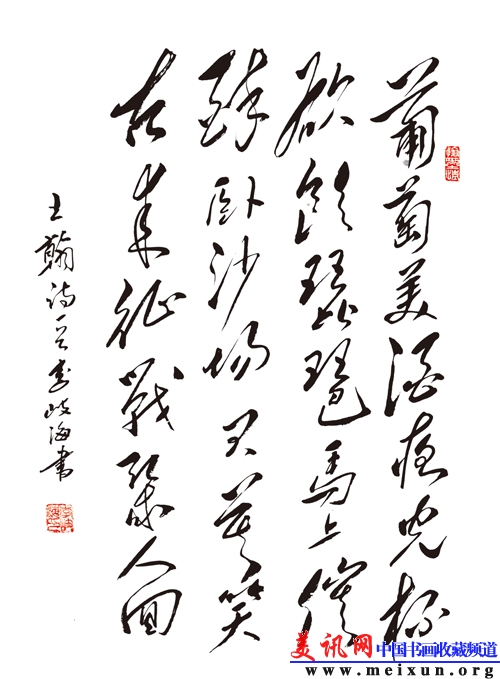 葡萄美酒夜光杯
欲飲琵琶馬上催
醉臥沙場君莫笑
古來征戰幾人回
王翰詩一首 李海書
美讯网 中国书画收藏频道
www.meixun.org